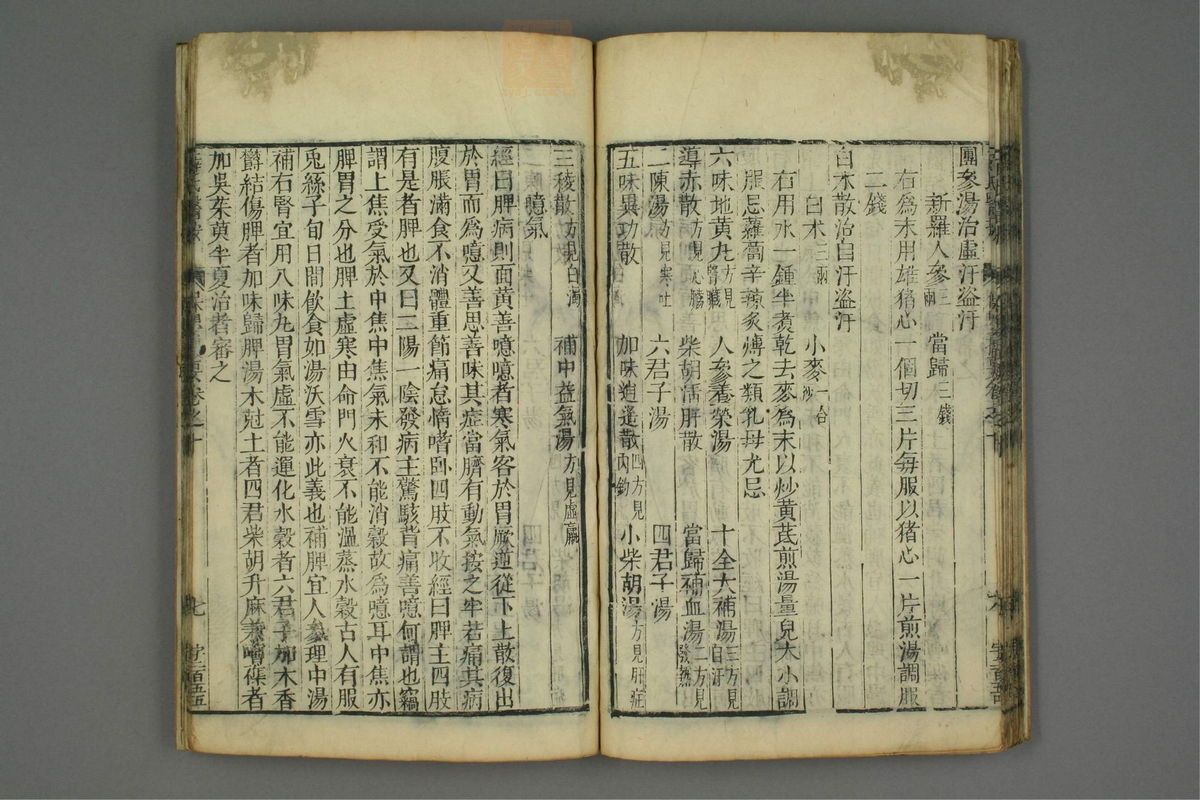 團參湯治虛汗盜汗
新羅人參 兩 當歸三錢
右爲末用雄猪心一個切三片每服以猪心一片煎湯調服
二錢
白术散治自汗盜汗
白术三兩 小麥一合炒
右用水一鍾半煮乾去麥爲末以炒黃芪煎湯量兒大小調
服忌蘿蔔辛辣炙煿之類乳母尤忌
六味地黃丸方見腎臟 人參養榮湯 十全大補湯三方見自汗
導赤散方見心臟 柴胡清肝散 當歸補血湯二方見發熱
二陳湯方見寒吐 六君子湯 四君子湯
五味異功散 加味逍遙散四方見內釣 小柴胡湯方見肝症
三稜散方見白濁 補中益氣湯方見虛羸
噫氣
經曰脾病則面黃善噫噫者寒氣客於胃厥逆從下上散復出
於胃而爲噫又善思善味其症當臍有動氣按之牢若痛其病
腹脹滿食不消體重節痛怠惰嗜卧四肢不收經曰脾主四肢
有是者脾也又曰二陽一陰發病主驚駭背痛善噫何謂也竊
謂上焦受氣於中焦中焦氣未和不能消穀故爲噫耳中焦亦
脾胃之分也脾土虛寒由命門火衰不能溫蒸水穀古人有服
兎絲子旬日間飲食如湯沃雪亦此義也補脾宜人參理中湯
補右腎宜用八味丸胃氣虛不能運化水穀者六君子加木香
欝結傷脾者加味歸脾湯木尅土者四君柴胡升麻兼嘈雜者
加吳茱萸半夏治者審之
七